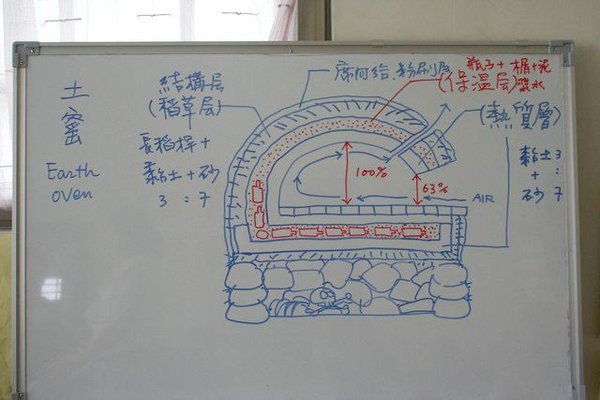 土
窯
Earth
oven
結構層
(稻草层)
長稻桿+
黏土+砂
3:7
席何给.粉刷层
瓶子+木屑+泥
漿水
(保温层)
(熱質層)
黏土3
+ :
砂 7
100%
63%
AIR